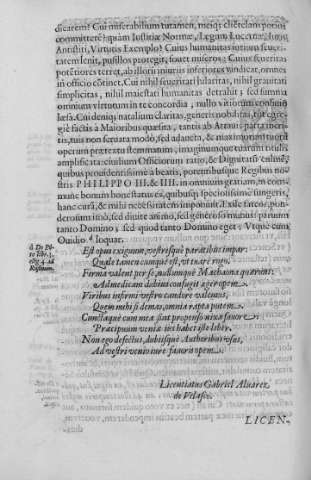 dicarem? Cui miserabilium tutamen, meiq; clientelam potiùs
committerē? quàm Iustitiæ Normæ, Legum Lucernæ, Iuris
Antistiti, Virtutis Exemplo? Cuius humanitas iustitiæ seueri-
tatem lenit, pusillos protegit, fouet miseros; Cuius seueritas
potētiores terret, ab illorū iniurijs inferiores vindicat, omnes
in officio cōtinet. Cui nihil seueritati hilaritas, nihil grauitati
simplicitas, nihil maiestati humanitas detrahit; sed summa
omnium virtutum in te concordia, nullo vitiorum confinio
læsa. Cui deniq; natalium claritas, generis nobilitas, tot egre-
giè factis à Maioribus quæsita, tanta ab Atauis parta meri-
tis, tuis non seruata modò, sed adaucta, & maximorum tuorū
operum prætextu stemmatum, imaginumque tuarum titulis
amplificata: ciuilium Officiorum ratio, & Dignitatū culmē,
quibus prouidentissimè à beatis, potentibusque Regibus no-
stris PHILIPPO III. & IIII. in omnium gratiam, in com-
munē bonum honestatus es, quibus speciosissimè fungeris,
hanc curā, & mihi necessitatem imponunt. Exile factor, pon-
derosum imò, sed diuite animo, sed generoso munus paruum
tanto Domino; sed quod tanto Domino eget; Vtque cum
Ouidio. d loquar.
d De Pō-
to lib. 3.
eleg. 4. ad
Rufinum.
Est opus exiguum, vestrisque paratibus impar:
Quale tamen cumque est, vt tueare rogo.
Firma valent per se, nullumque Machaona quærunt:
Ad medicam dubius confugit æger opem.
Viribus infirmi vestro candore valemus,
Quem mihi si demas, omnia rapta putem.
Cunctaque cum mea sint propenso nixa fauore
Præcipuum veniæ ius habet iste liber.
Ad vestri venio iure fauoris opem.
Licentiatus Gabriel Aluarez
de Velasco.
LICEN-